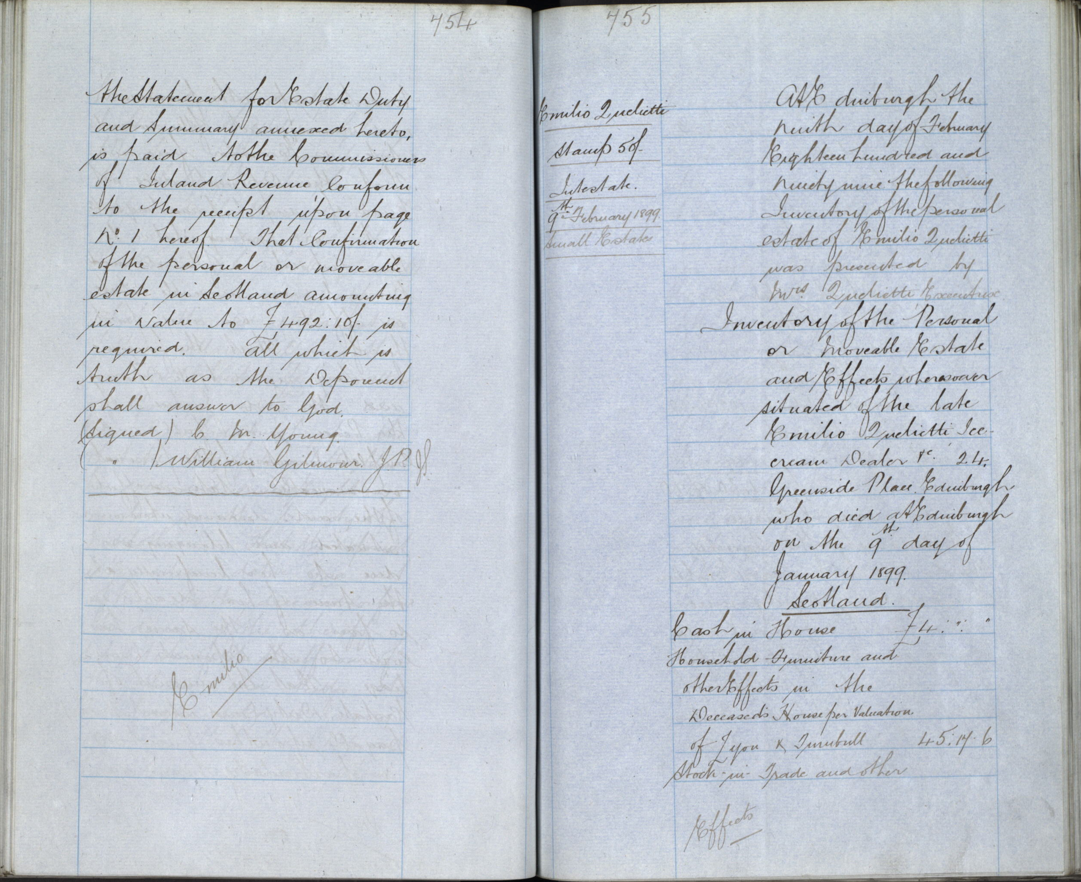 454
the Statement for Estate Duty
and Summary annexed hereto,
is paid to the Commissioners
of Inland Revenue Conform
to the receipt upon page
No. 1 hereof That Confirmation
of the personal or moveable
estate in Scotland amounting
in value to £492:10/- is
required. All which is
truth as the Deponent
shall answer to God.
(Signed) C. M. Young.
( " ) William Gilmour J.P.
Emilio
455
Emilio Quilietti
Stamp 50/-
Intestate.
9th February 1899
Small Estate
At Edinburgh the
ninth day of February
Eighteen hundred and
ninety nine the following
Inventory of the personal
estate of Emilio Quilietti
was presented by
Mrs Quilietti Executrix
Inventory of the Personal
or Moveable Estate
and Effects wheresoever
situated of the late
Emilio Quilietti Ice-
cream Dealer &c. 24.
Greenside Place, Edinburgh
who died at Edinburgh
on the 9th day of
January 1899.
Scotland.
Cash in House £4. " "
Household Furniture and
other Effects in the
Deceased's House per Valuation
of Lyon & Turnbull 45.17.6
Stock-in-Trade and other
Effects